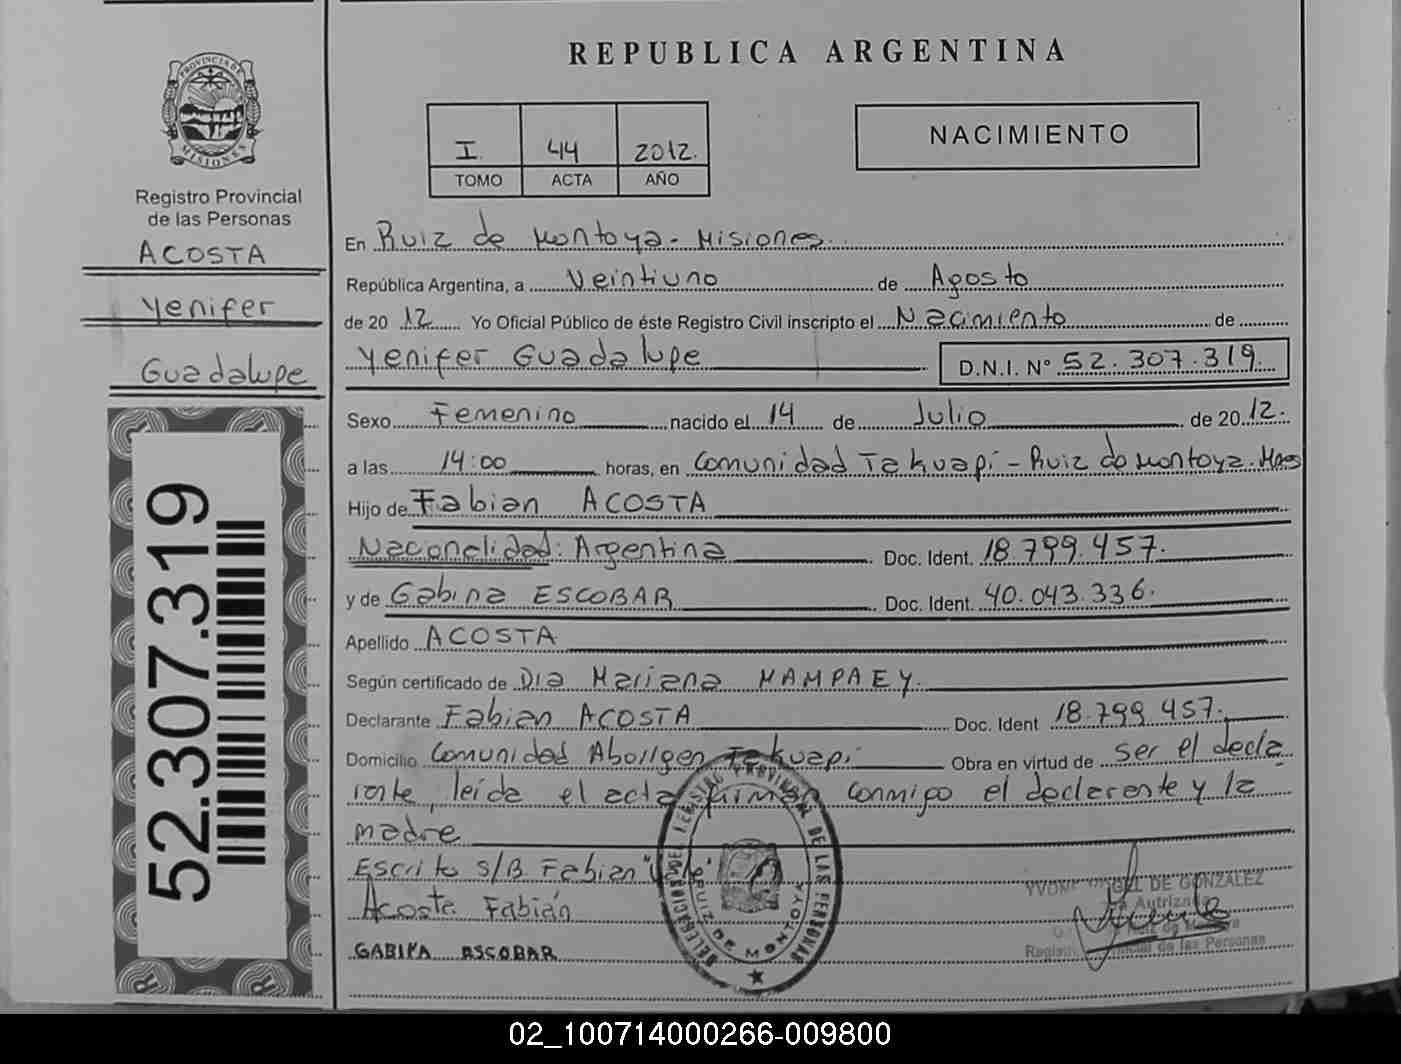 REPUBLICA ARGENTINA
PROVINCIA DE
MISIONES
Registro Provincial
de las Personas
ACOSTA
Yenifer
Guadalupe
52.307.319
I. 44 2012.
TOMO ACTA AÑO
NACIMIENTO
En Ruiz de Montoya - Misiones.
República Argentina, a Veintiuno de Agosto
de 20 12 Yo Oficial Público de éste Registro Civil inscripto el Nacimiento de
Yenifer Guadalupe D.N.I. Nº 52.307.319.
Sexo Femenino nacido el 14 de Julio de 20 12.
a las 14:00 horas, en Comunidad Takuapí - Ruiz de Montoya. Mnes
Hijo de Fabian ACOSTA
Nacionalidad: Argentina Doc. Ident. 18.799.457.
y de Gabina ESCOBAR Doc. Ident. 40.043.336.
Apellido ACOSTA
Según certificado de Dra Mariana MAMPAEY.
Declarante Fabian ACOSTA Doc. Ident 18.799.457.
Domicilio Comunidad Aborigen Takuapí Obra en virtud de ser el decla
rante, leída el acta firman conmigo el declarente y la
madre
Escrito s/B Fabian "Vale"
Acosta Fabián
GABINA ESCOBAR
DELEGACION DEL REGISTRO PROVINCIAL DE LAS PERSONAS
RUIZ DE MONTOYA
DE GONZALEZ
Ruiz de Montoya
de las Personas
02_100714000266-009800